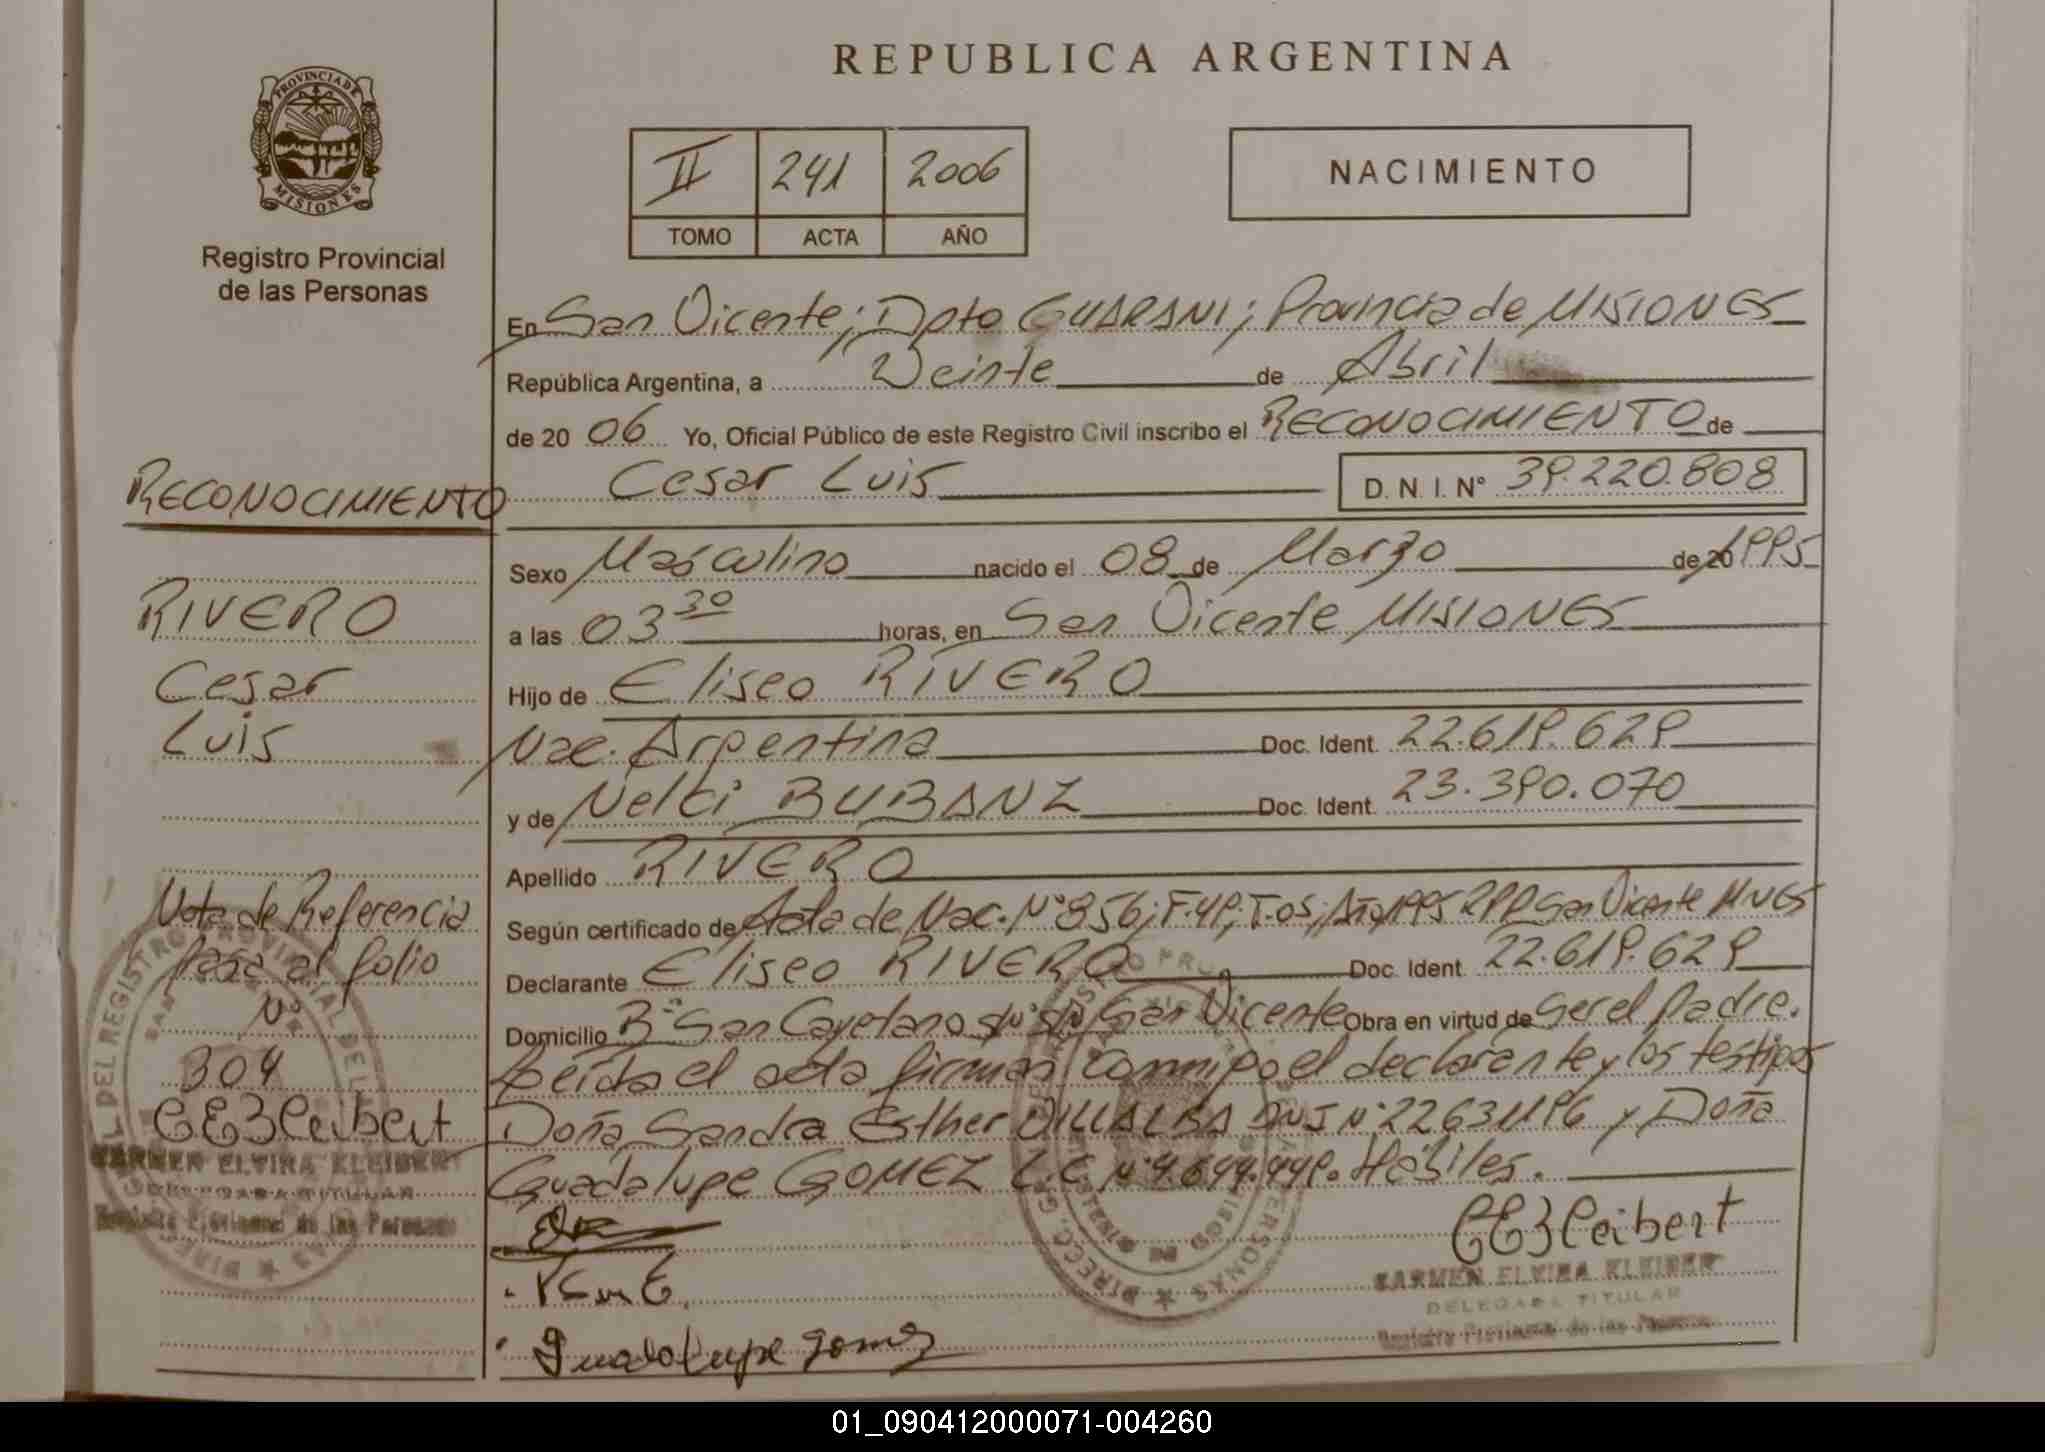 REPUBLICA ARGENTINA
PROVINCIA DE MISIONES
Registro Provincial
de las Personas
II 241 2006
TOMO ACTA AÑO
NACIMIENTO
En San Vicente; Dpto GUARANI; Provincia de MISIONES
República Argentina, a Veinte de Abril
de 20 06 Yo, Oficial Público de este Registro Civil inscribo el RECONOCIMIENTO de
Cesar Luis D. N. I. Nº 39.220.808
Sexo Masculino nacido el 08 de Marzo de 20 1995
a las 03 30 horas, en San Vicente MISIONES
Hijo de Eliseo RIVERO
Nac. Argentina Doc. Ident. 22.619.629
y de Nelci BUBANZ Doc. Ident. 23.390.070
Apellido RIVERO
Según certificado de Acta de Nac. Nº 856; F. 49; T. 05; Año 1995 RPP San Vicente MNES
Declarante Eliseo RIVERO Doc. Ident. 22.619.629
Domicilio Bº San Cayetano San Vicente Obra en virtud de Ser el Padre.
Leida el acta firman conmigo el declarante y los testigos
Doña Sandra Esther VILLALBA DNI Nº 22631196 y Doña
Guadalupe GOMEZ L.C. Nº 4.644.449. Hábiles.
Guadalupe Gomez
CEKleibert
CARMEN ELVIRA KLEIBERT
DELEGADA TITULAR
Registro Provincial de las Personas
RECONOCIMIENTO
RIVERO
Cesar
Luis
Nota de Referencia
Pasa al folio
Nº
304
CEKleibert
CARMEN ELVIRA KLEIBERT
DELEGADA TITULAR
Registro Provincial de las Personas
01_090412000071-004260